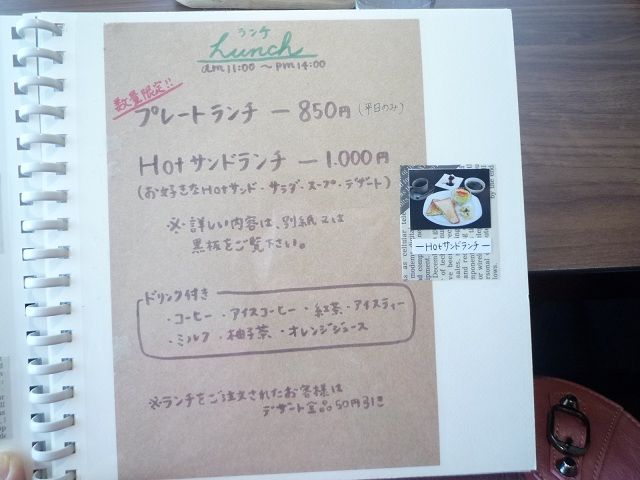 ランチ
Lunch
am 11:00 ～ pm 14:00
数量限定!!
プレートランチ ― 850円 (平日のみ)
Hotサンドランチ ― 1.000円
(お好きなHotサンド・サラダ・スープ・デザート)
※・詳しい内容は、別紙又は
黒板をご覧下さい。
― Hotサンドランチ ―
ドリンク付き
・コーヒー・アイスコーヒー・紅茶・アイスティー
・ミルク・柚子茶・オレンジジュース
※ランチをご注文されたお客様は
デザート全品50円引き